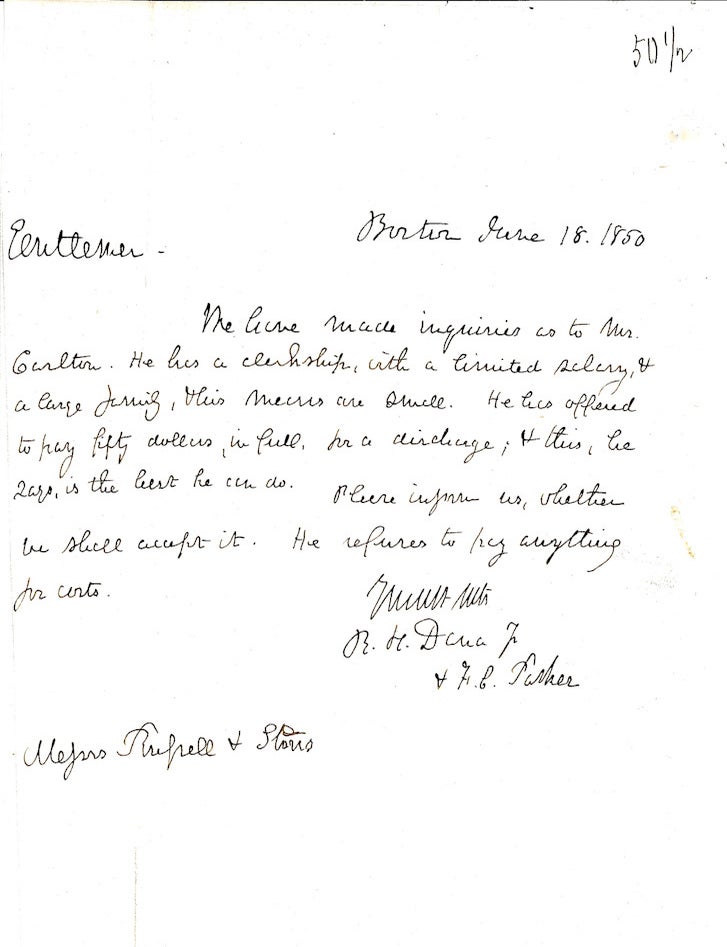 50 1/2
Boston June 18. 1850
Gentlemen -
We have made inquiries as to Mr.
Carlton. He has a clerkship, with a limited salary, &
a large family, & his means are small. He has offered
to pay fifty dollars, in full, for a discharge; & this, he
says, is the best he can do. Please inform us, whether
we shall accept it. He refuses to pay anything
for costs.
R. H. Dana Jr
& F. E. Parker
Messrs Russell &